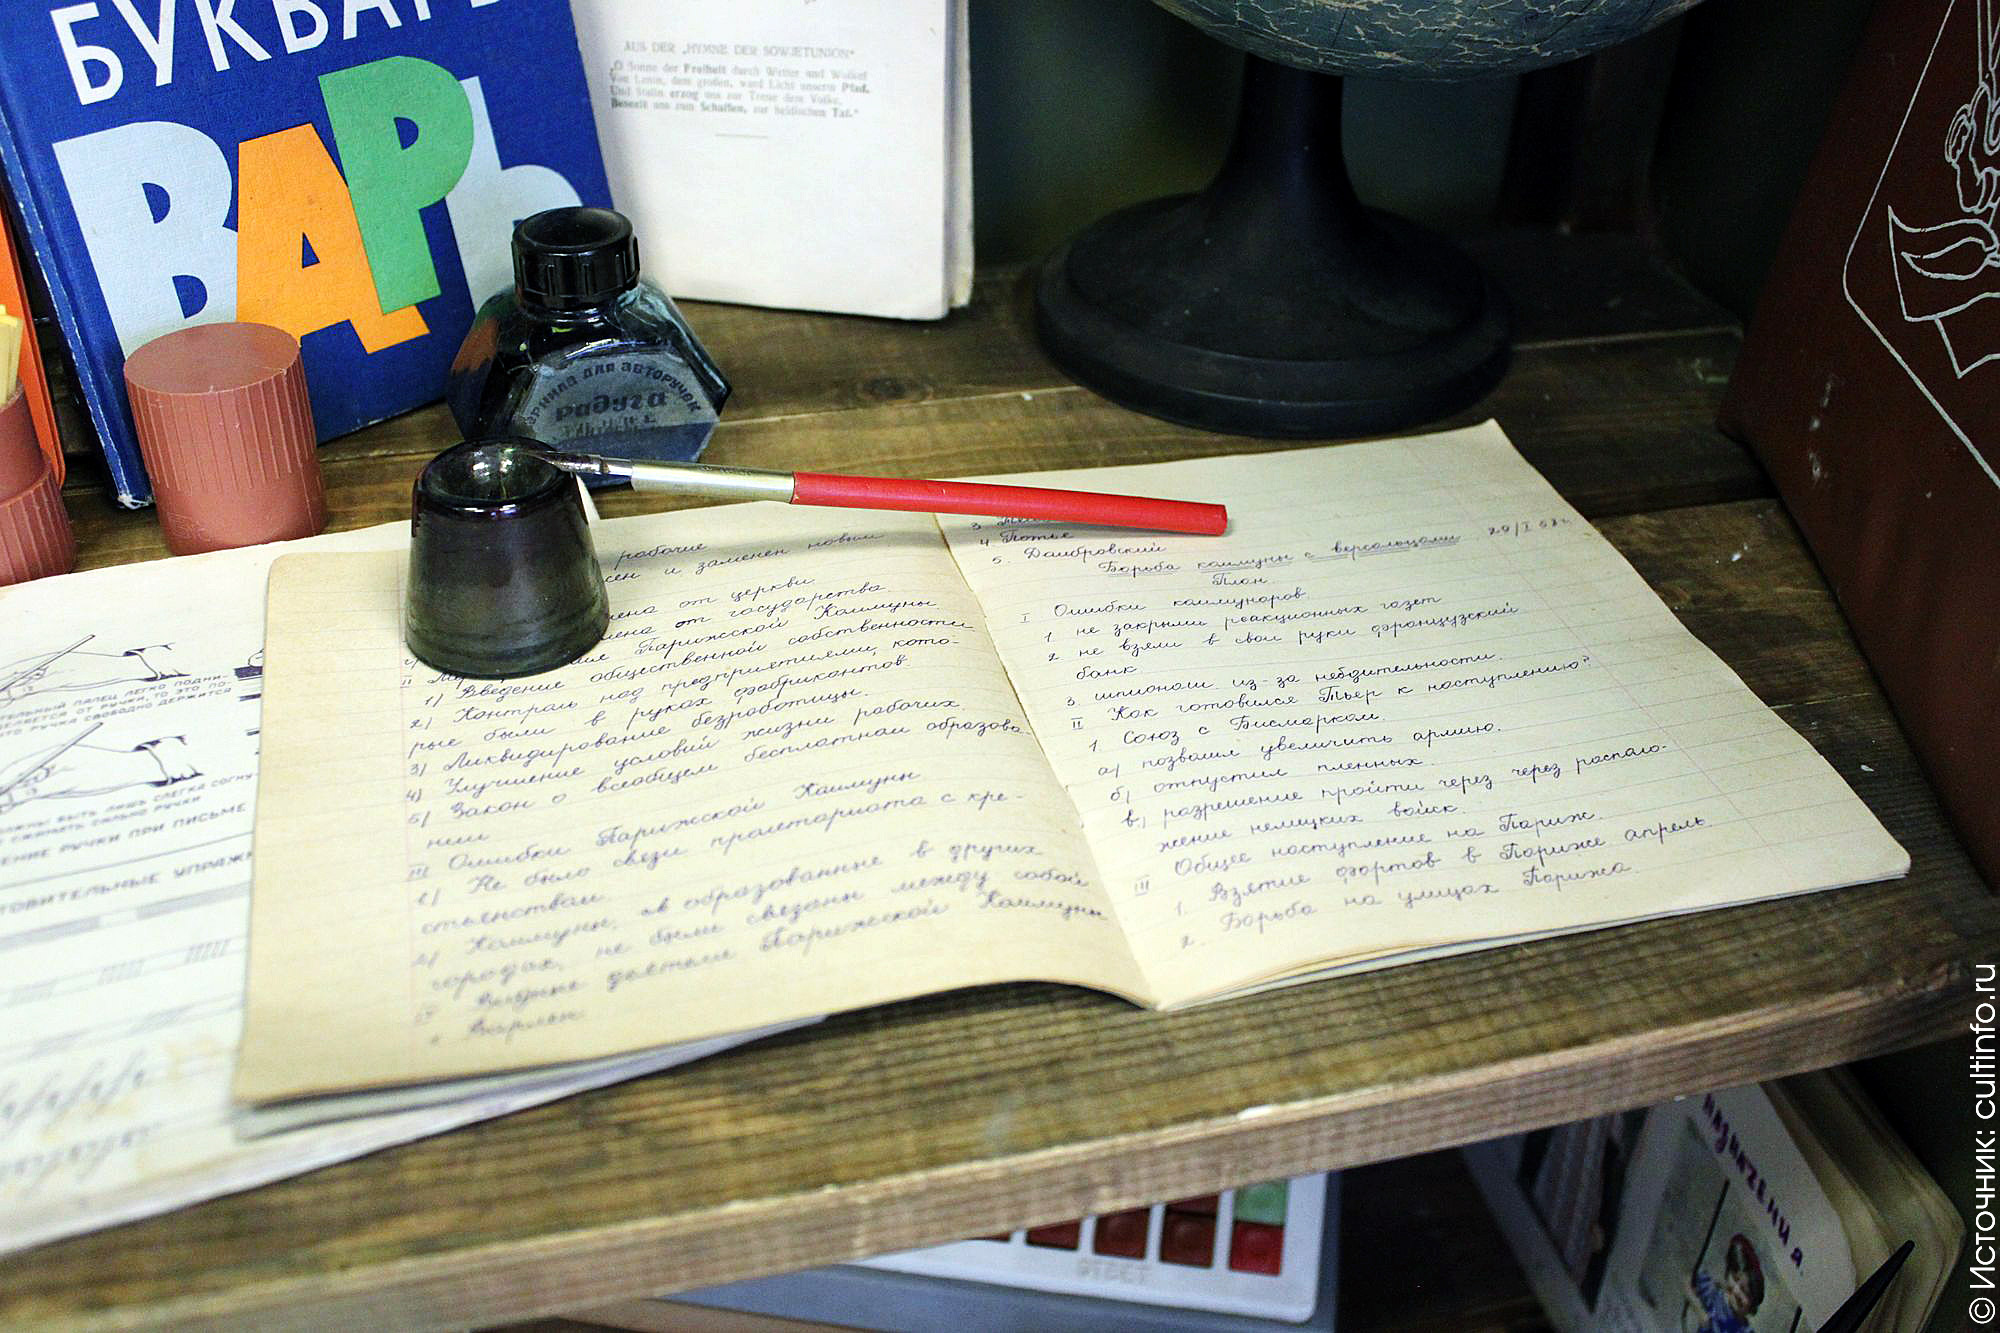 БУКВАРЬ
ВАРЬ
AUS DER „HYMNE DER SOWJETUNION"
„O Sonne der Freiheit durch Wetter und Wolken
Von Lenin, dem großen, ward Licht unserm Pfad.
Und Stalin erzog uns zur Treue dem Volke,
Beseelt uns zum Schaffen, zur heldischen Tat."
чернила для авторучек
Радуга
рабочие
и заменен новым
от церкви.
от государства.
Парижской Коммуны.
II
1) Введение общественной собственности
2) Контроль над предприятиями, кото-
рые были в руках фабрикантов.
3) Ликвидирование безработицы.
4) Улучшение условий жизни рабочих.
5) Закон о всеобщем бесплатном образова-
нии
III Ошибки Парижской Коммуны
1) Не было связи пролетариата с кре-
стьянством.
2) Коммуны, образованные в других
городах, не были связаны между собой
IV Видные деятели Парижской Коммуны
1. Варлен
3.
4. Потье
5. Домбровский
20/I
Борьба коммуны с версальцами
План.
I Ошибки коммунаров.
1 не закрыли реакционных газет
2 не взяли в свои руки французский
банк
3. шпионаж из-за небдительности.
II Как готовился Тьер к наступлению?
1 Союз с Бисмарком.
а) позволил увеличить армию.
б) отпустил пленных.
в) разрешение пройти через через располо-
жение немецких войск.
Общее наступление на Париж.
III
1. Взятие фортов в Париже апрель.
2. Борьба на улицах Парижа.
ПАЛЕЦ ЛЕГКО ПОДНИ-
ОТ РУЧКИ, ТО ЭТО ПО-
ЧТО РУЧКА СВОБОДНО ДЕРЖИТСЯ
БЫТЬ ЛИШЬ СЛЕГКА СОГНУ-
СЖИМАТЬ СИЛЬНО РУЧКИ
РУЧКИ ПРИ ПИСЬМЕ
УПРАЖ
© Источник: cultinfo.ru